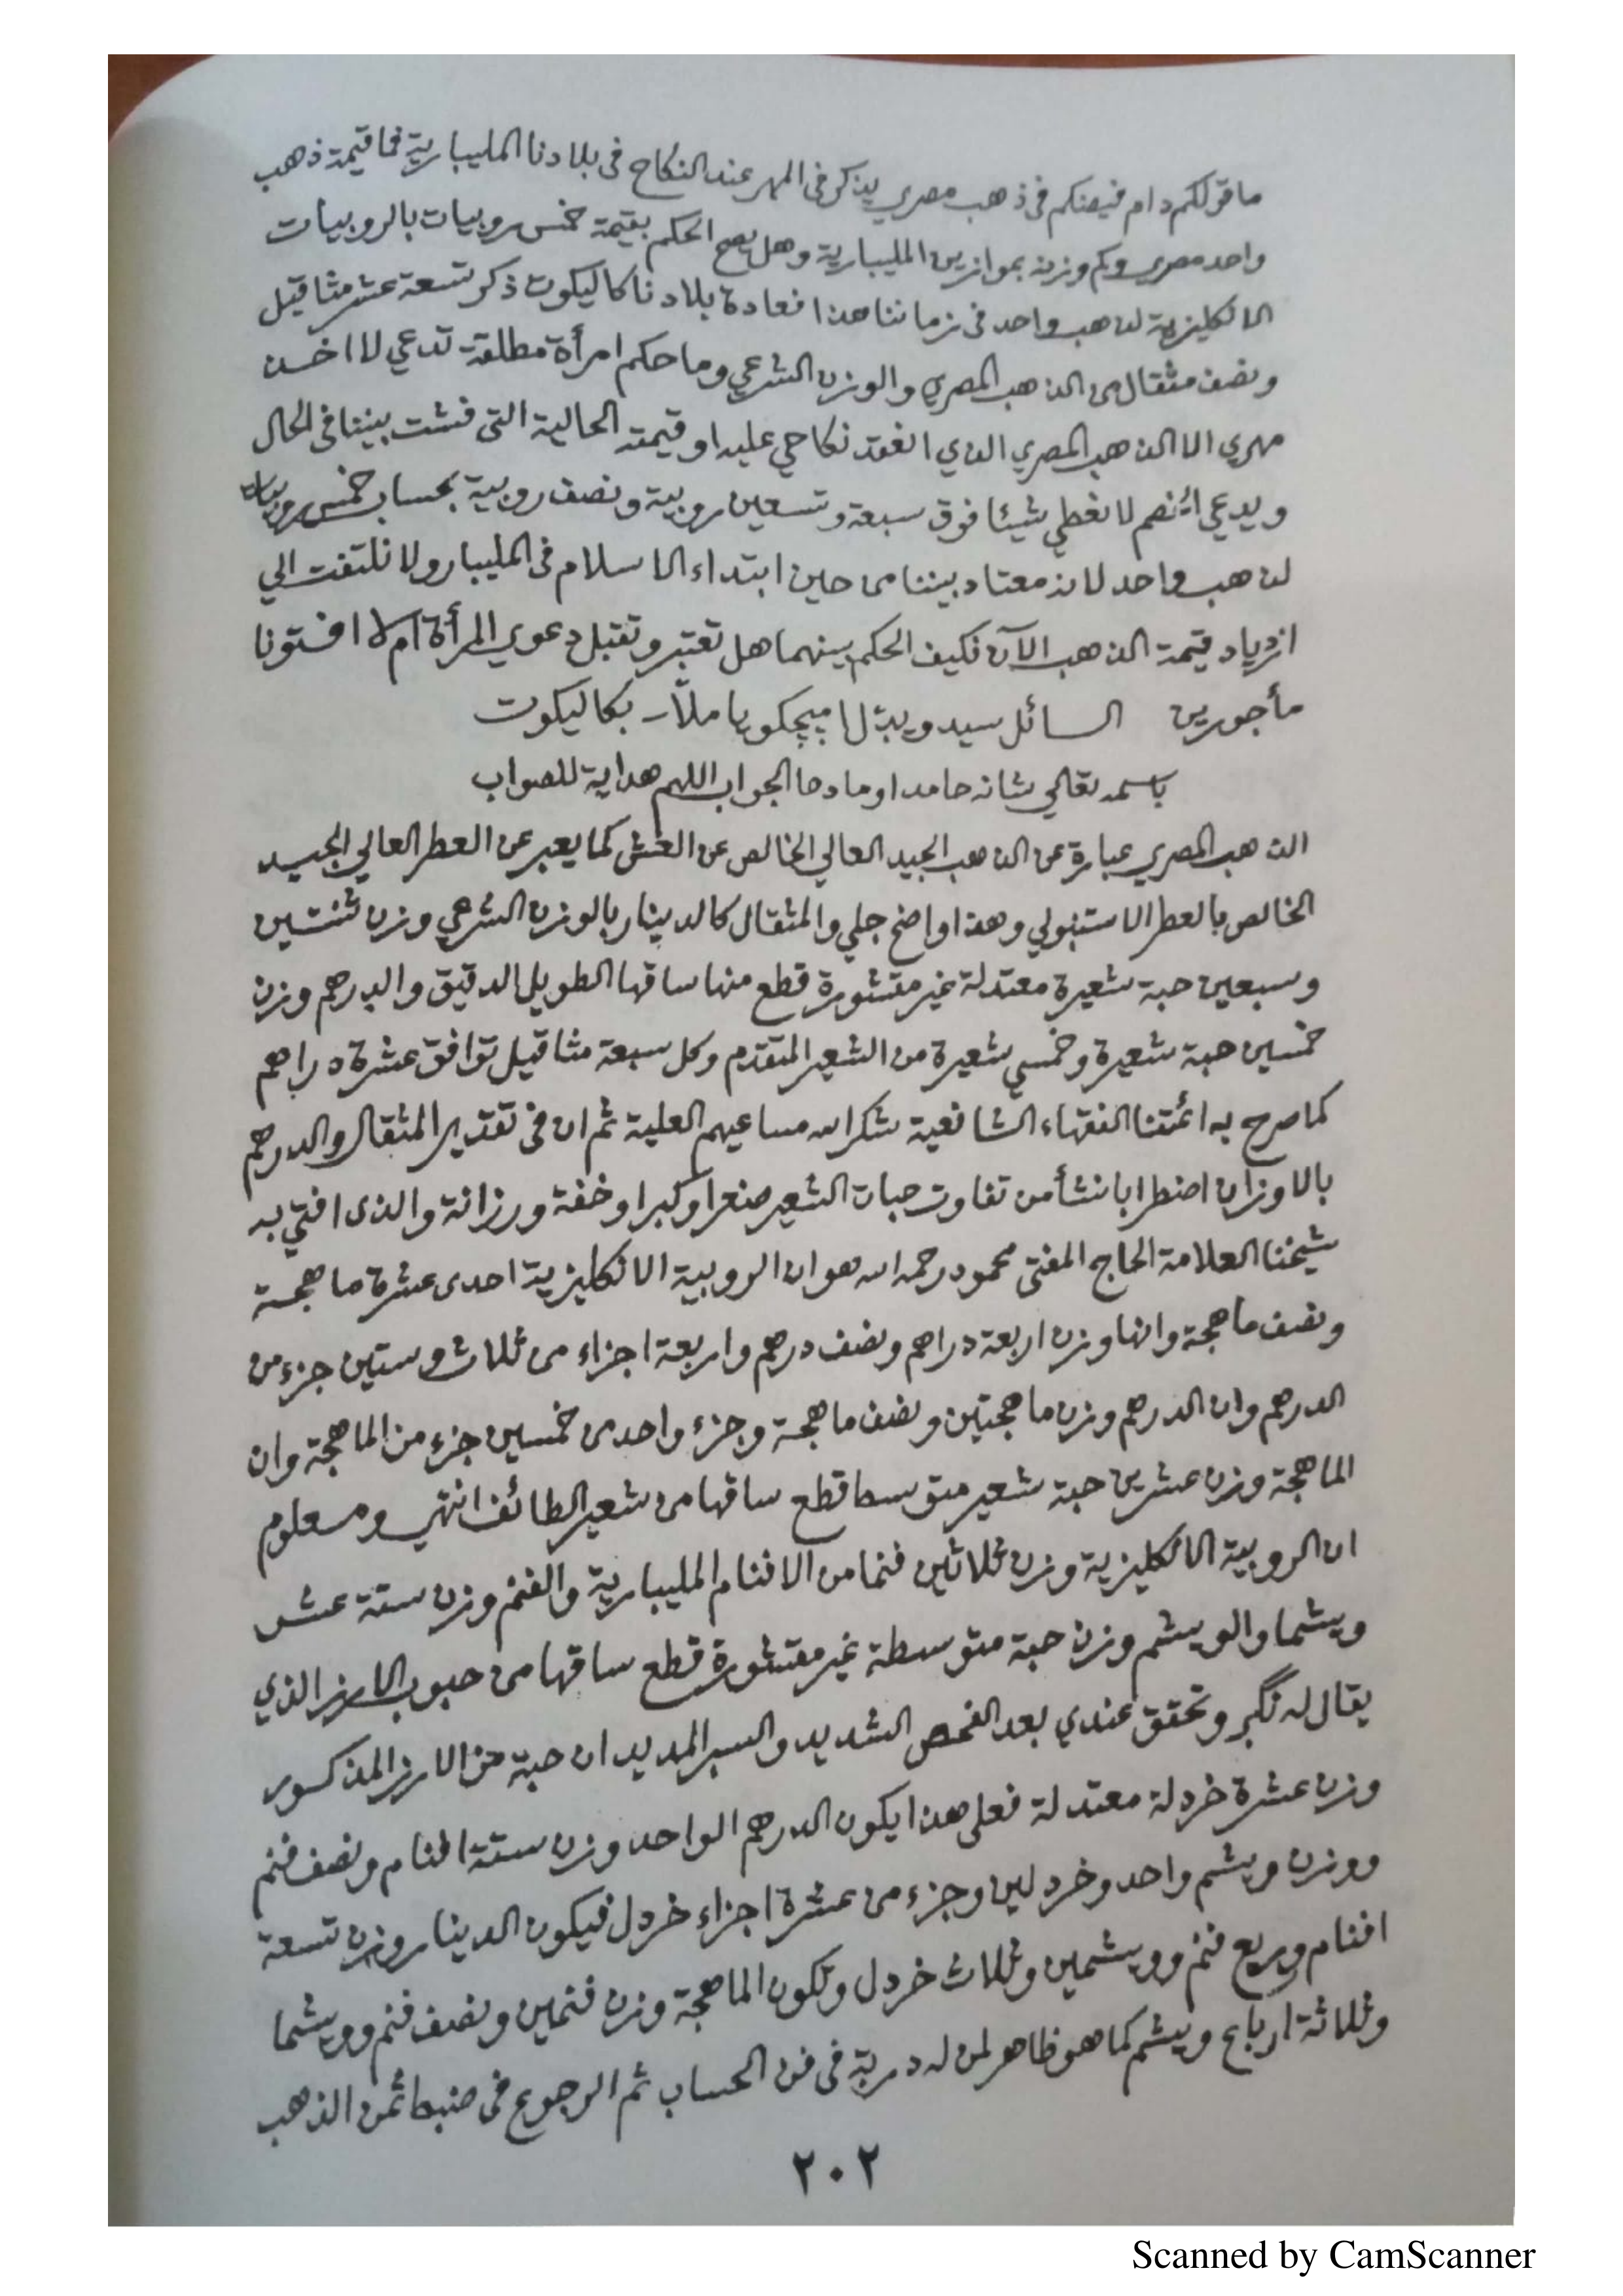 ما قولكم دام فيضكم في ذهب مصري يذكر في المهر عند النكاح في بلادنا المليبارية فما قيمة ذهب
واحد مصري وكم وزنه بموازين المليبارية وهل يصح الحكم بقيمة خمس روبيات بالروبيات
الانكليزية لذهب واحد في زماننا هذا فعادة بلادنا كاليكوت ذكر تسعة عشر مثاقيل
ونصف مثقال من الذهب المصري والوزن الشرعي وما حكم امرأة مطلقة تدعي لا اخذ
مهري الا الذهب المصري الذي انعقد نكاحي عليه او قيمته الحالية التي فشت بيننا في الحال
ويدعي انهم لا نعطي شيئا فوق سبعة وتسعين روبية ونصف روبية بحساب خمس روبيات
لذهب واحد لانه معتاد بيننا من حين ابتداء الاسلام في المليبار ولا نلتفت الي
ازدياد قيمة الذهب الآن فكيف الحكم بينهما هل تعتبر وتقبل دعوي المرأة ام لا افتونا
مأجورين السائل سيد ويدل بكاليكوت
باسمه تعالي شانه حامدا وما دحا الجواب اللهم هداية للصواب
الذهب المصري عبارة عن الذهب الجيد العالي الخالص عن الغش كما يعبر عن العطر العالي الجيد
الخالص بالعطر الاستنبولي وهذا واضح جلي والمثقال كالدينار بالوزن الشرعي وزن ثنتين
وسبعين حبة شعيرة معتدلة غير مقشورة قطع منها ساقها الطويل الدقيق والدرهم وزن
خمسين حبة شعيرة وخمسي شعيرة من الشعير المتقدم وكل سبعة مثاقيل توافق عشرة دراهم
كما صرح به ائمتنا الفقهاء الشافعية شكر الله مساعيهم العلية ثم ان في تقدير المثقال والدرهم
بالاوزان اضطرابا نشأ من تفاوت حبات الشعير صغرا وكبرا وخفة ورزانة والذي افتي به
شيخنا العلامة الحاج المفتي محمود رحمه الله هو ان الروبية الانكليزية احدى عشرة ماهجة
ونصف ماهجة وانها وزن اربعة دراهم ونصف درهم واربعة اجزاء من ثلاث وستين جزء من
الدرهم وان الدرهم وزن ماهجتين ونصف ماهجة وجزء واحد من خمسين جزء من الماهجة وان
الماهجة وزن عشرين حبة شعير متوسط قطع ساقها من شعير الطائف انتهي ومعلوم
ان الروبية الانكليزية وزن ثلاثين فنما من الافنام المليبارية والفنم وزن ستة عشر
ويشما والويشم وزن حبة متوسطة غير مقشورة قطع ساقها من حبوب الارز الذي
يقال له نگر وتحقق عندي بعد الفحص الشديد والسبر المديد ان حبة من الارز المذكور
وزن عشرة خردلة معتدلة فعلى هذا يكون الدرهم الواحد وزن ستة افنام ونصف فنم
ووزن ويشم واحد وخردلين وجزء من عشرة اجزاء خردل فيكون الدينار وزن تسعة
افنام وربع فنم وويشمين وثلاث خردل وتكون الماهجة وزن فنمين ونصف فنم وويشما
وثلاثة ارباع ويشم كما هو ظاهر لمن له دربة في فن الحساب ثم الرجوع في ضبط ثمن الذهب
٢٠٢
Scanned by CamScanner